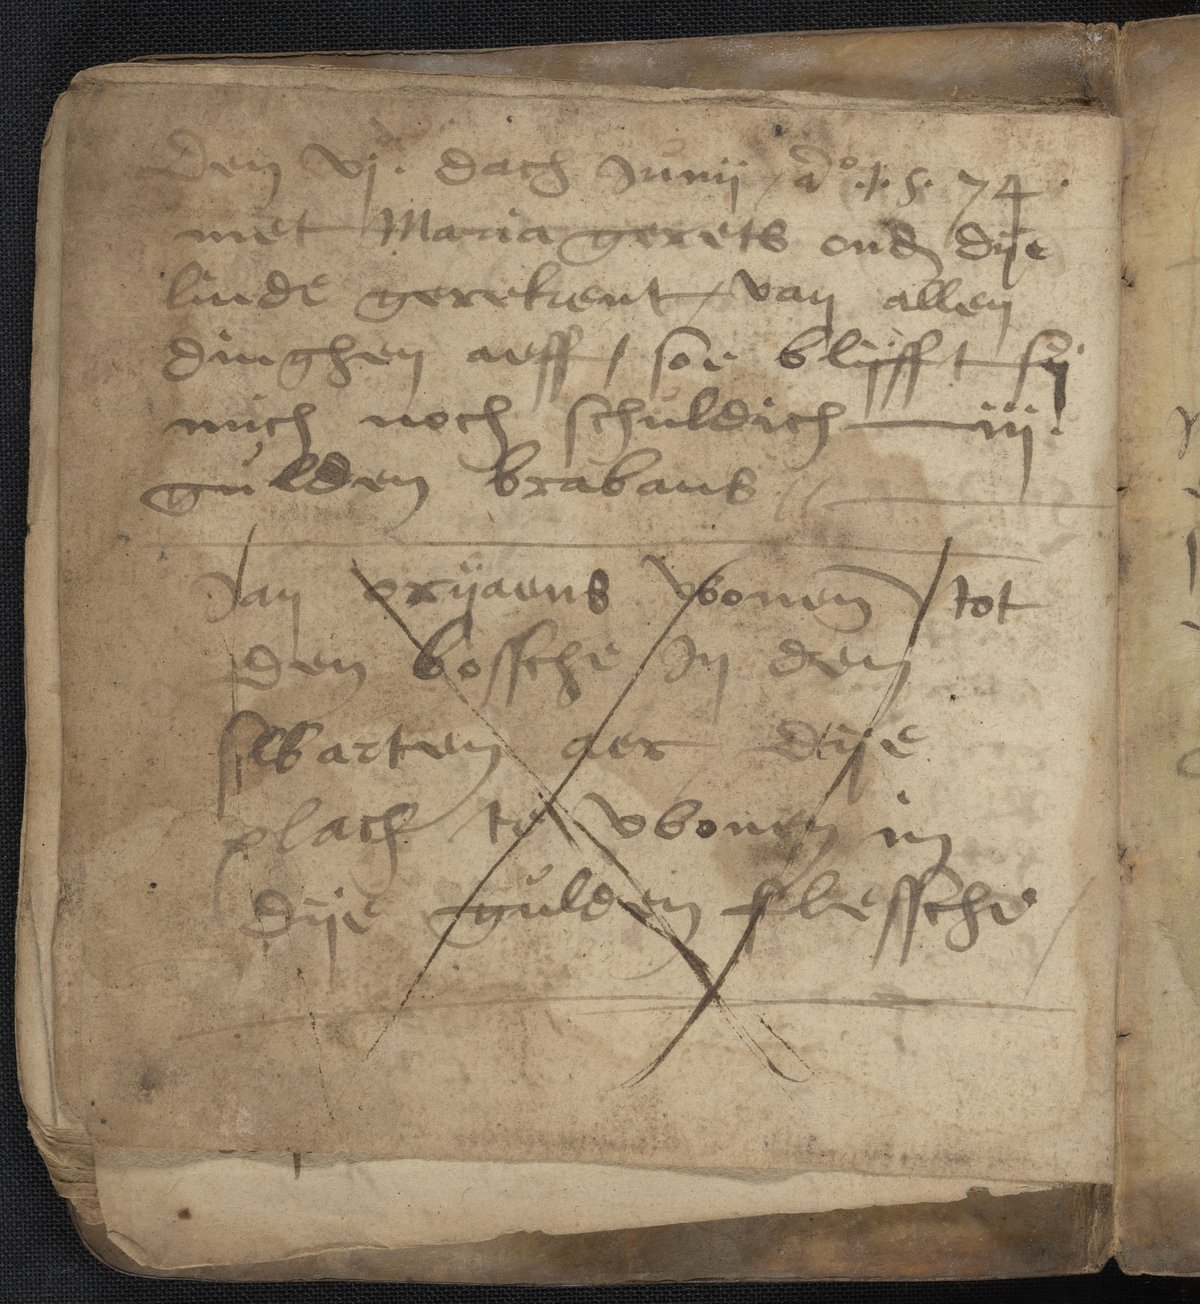 Den vj. dach Junij / a° .1.5. 74.
met Maria gerets ond dije
linde gerekent / van allen
dinghen aeff / soe blijfft sij
mich noch schuldich — iij.
gulden brabans //
Jan vrijaens wonen tot
den bossche Jn den
swarten aer dije
plach te wonen in
dije gulden flessche